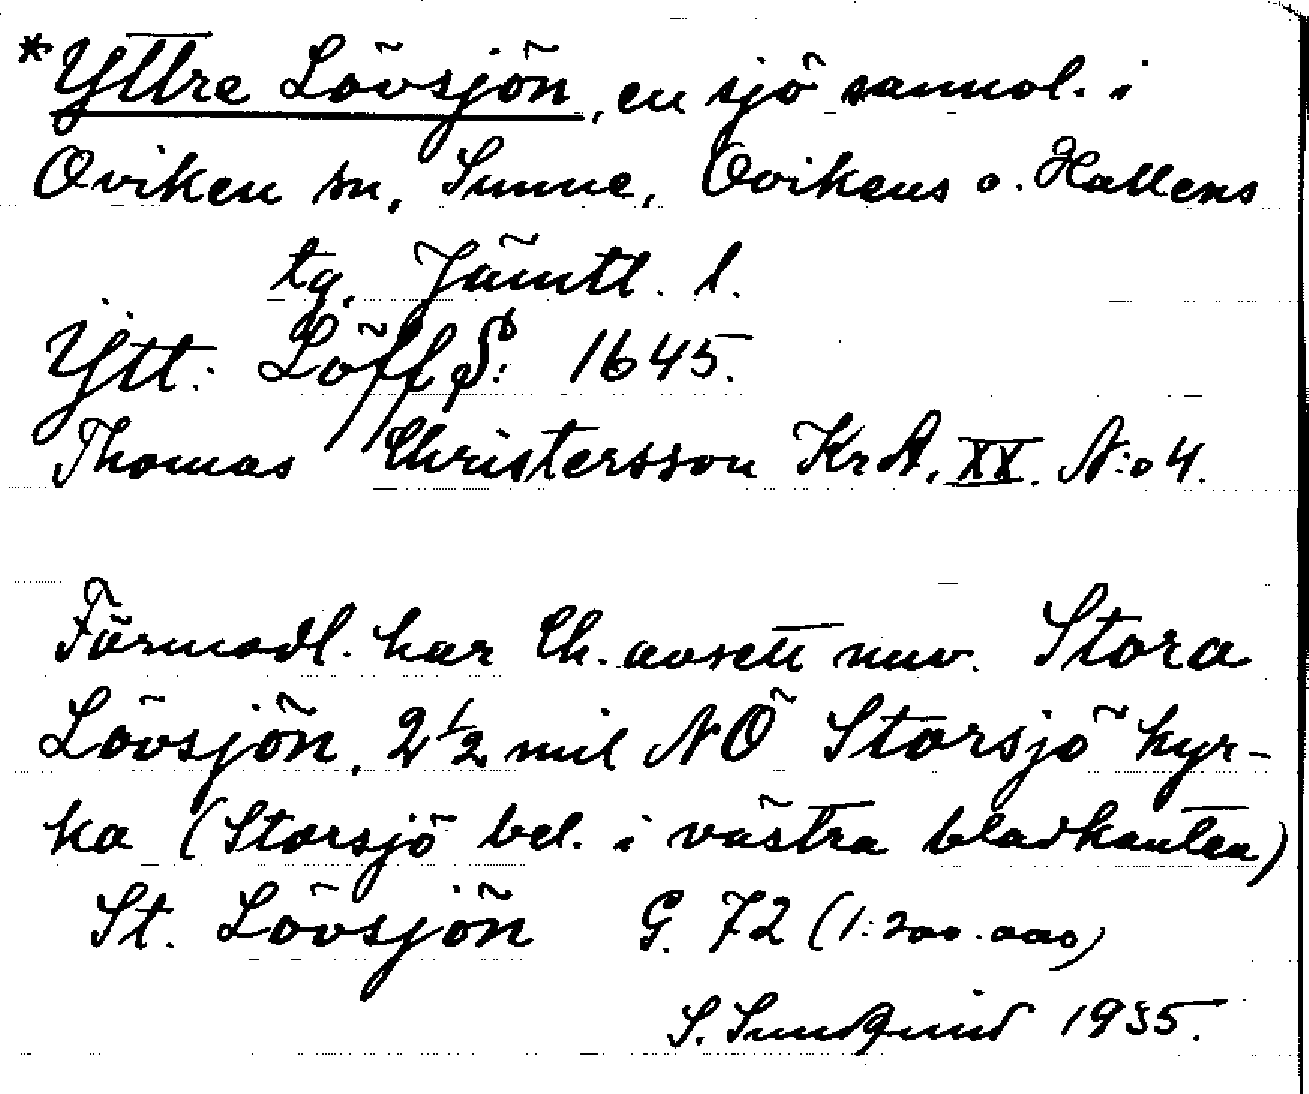 *Yttre Lövsjön, en sjö sannol. i
Oviken sn, Sunne, Ovikens o. Hallens
tg, Jämtl. l.
Ytt: Löff S: 1645.
Thomas Christersson KrA, XX. N:o 4.
Förmodl. har Ch. avsett nuv. Stora
Lövsjön, 2 1/2 mil NÖ Storsjö kyr-
ka (Storsjö bel. i västra bladkanten)
St. Lövsjön G. 72 (1:200.000)
S. Sundqvist 1935.